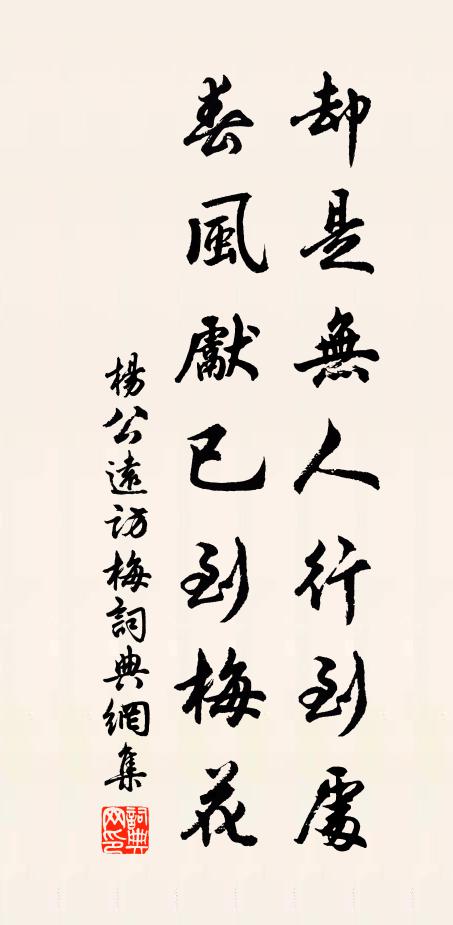 却是無人行到處
春風獻已到梅花
楊公遠訪梅詞典網集
詞典網印